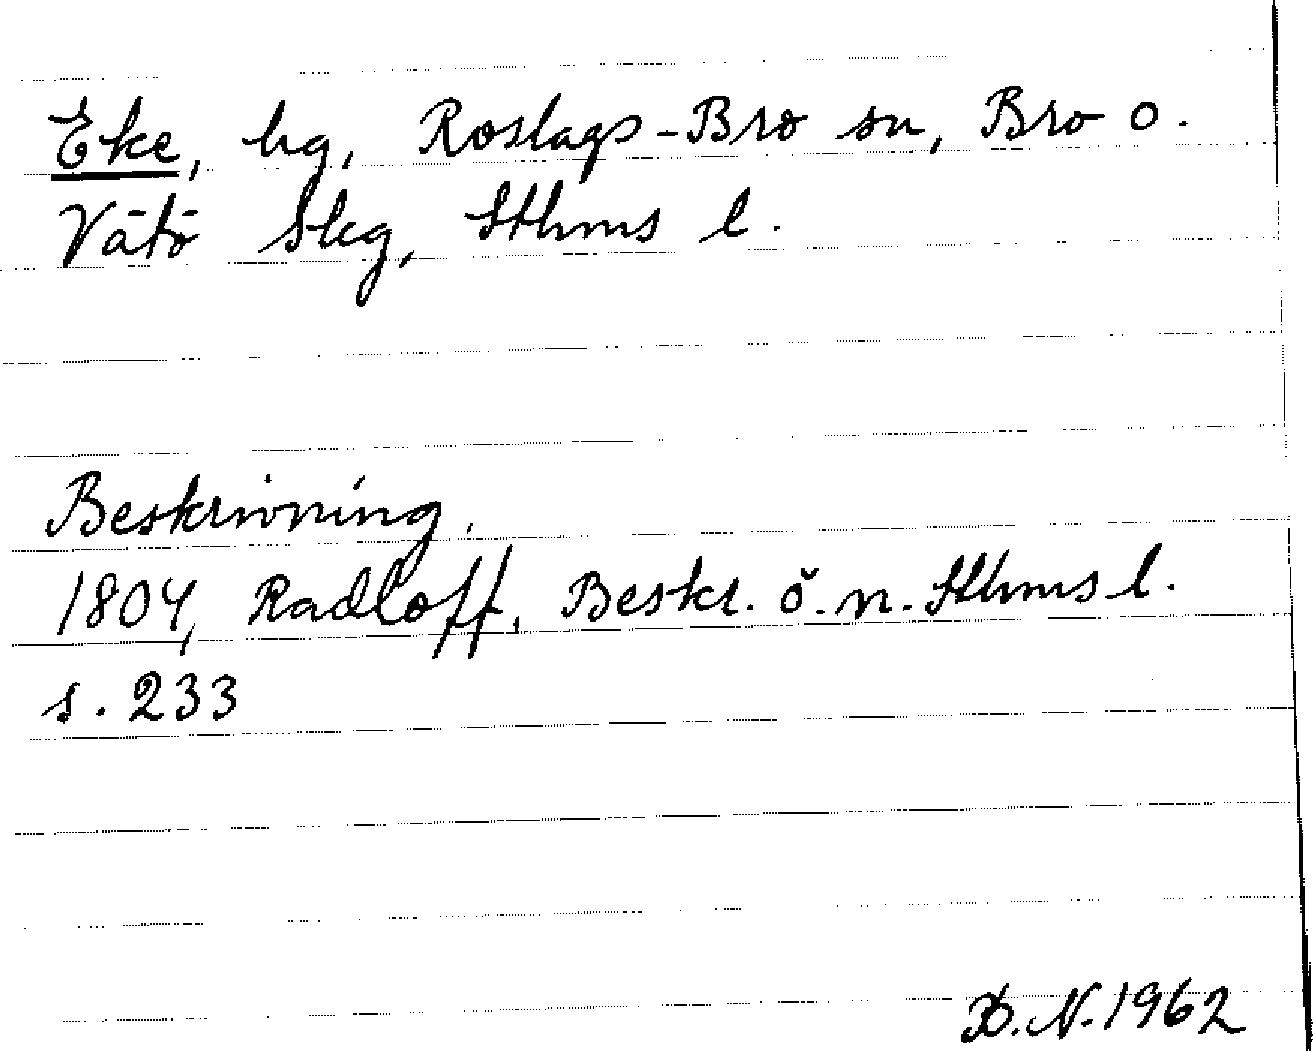 Eke, hg, Roslags-Bro sn, Bro o.
Vätö Skg, Sthms l.
Beskrivning.
1804, Radloff, Beskr. ö. n. Sthms l.
s. 233
D. N. 1962